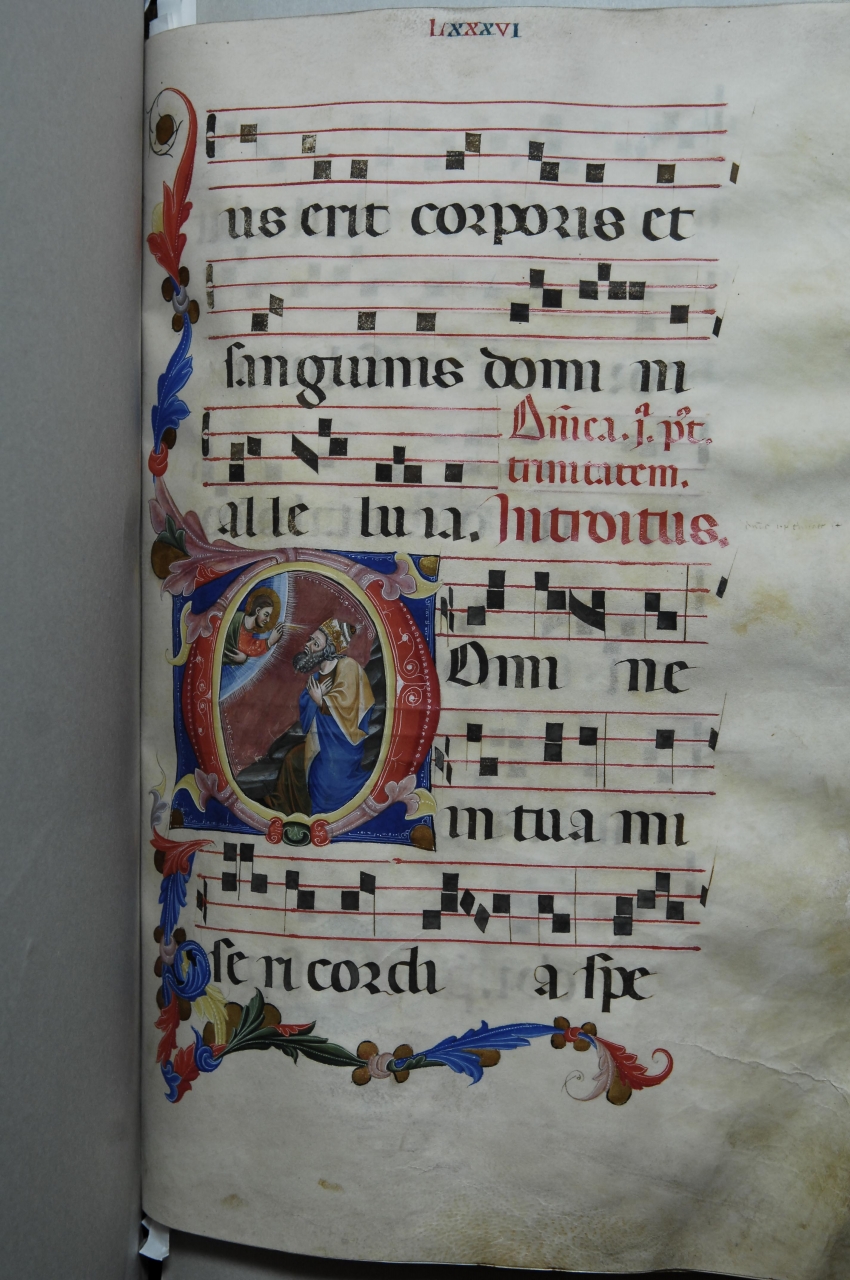 LXXXVI
us erit corporis et
sanguinis domi ni
Dnica. j. pt.
trinitatem.
alle luia. Introitus.
Domi ne
in tua mi
se ri cordi a spe